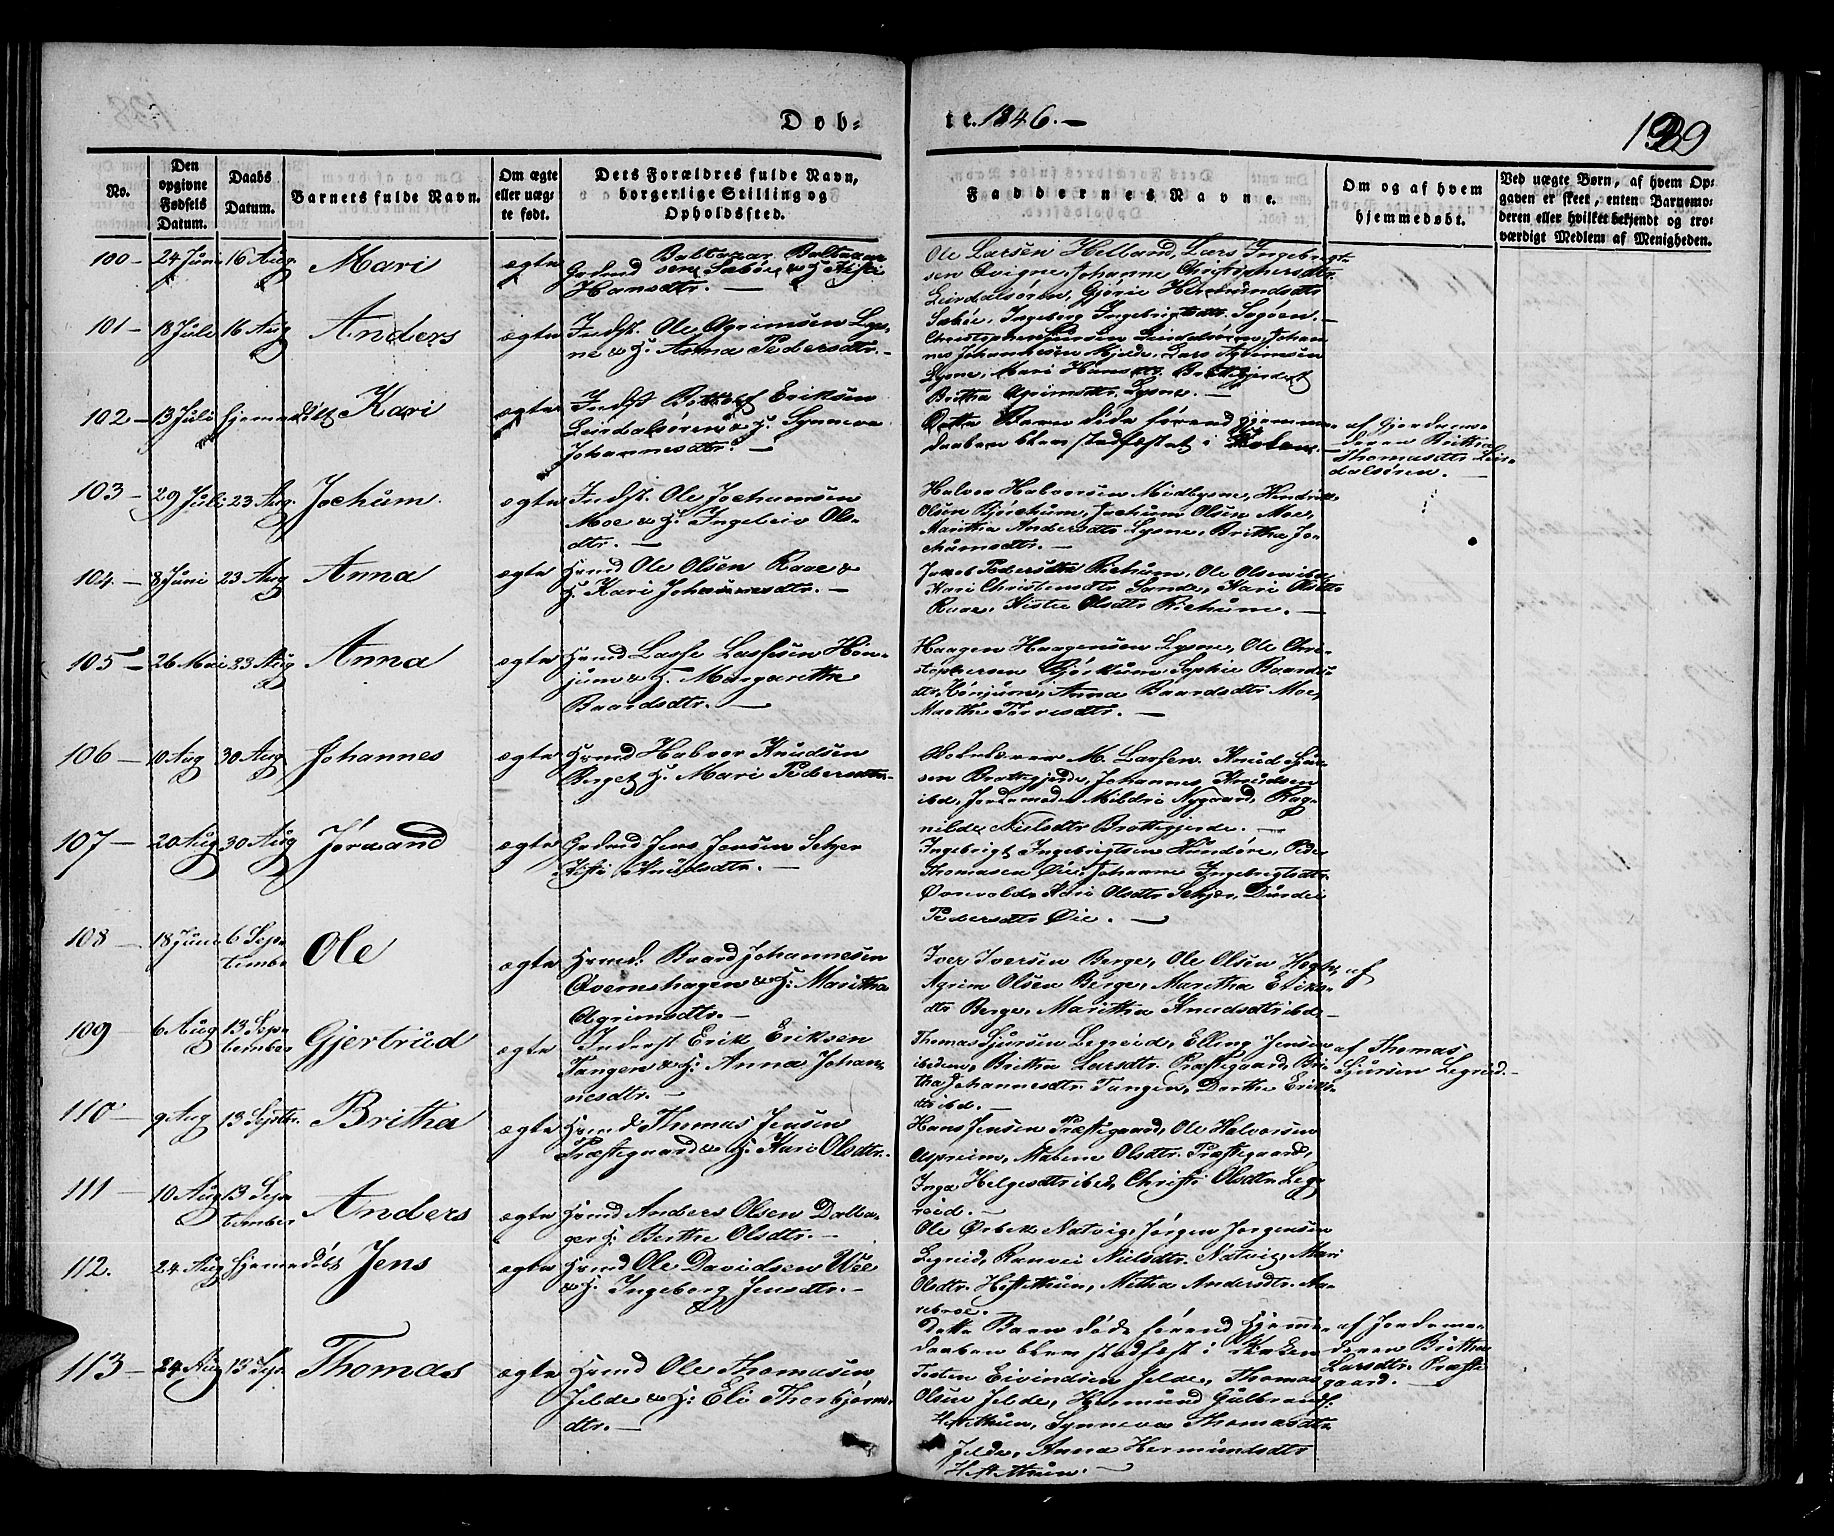 Døb-
te. 1846.—
139
No.
Den opgivne Fødsels Datum.
Daabs Datum.
Barnets fulde Navn.
Om ægte eller uægte født.
Dets Forældres fulde Navn, borgerlige Stilling og Opholdssted.
Faddernes Navne.
Om og af hvem hjemmedøbt.
Ved uægte Børn, af hvem Opgaven er skeet, enten Barnemoderen eller hvilket bekjendt og troværdigt Medlem af Menigheden.
100— 24 Juni 16 Aug. Mari ægte
Baltazar Baltazar
Hansdtr.—
Ole Larsen Helland, Lars Ingebrigt-
sen Qvigne, Johanne Christophersdtr
Leirdalsøren, Gjørie Hermundsdtr
Sæbøe, Ingeborg Ingebrigtsdtr.
101— 18 Juli 16 Aug Anders ægte
Indst. Ole Agrimsen Lys-
ne & H. Anna Pedersdtr.—
Leirdalsøren, Johan-
nes Johannesen Mjelde, Lars Agrimsen
Lysne, Mari Hansdtr. Brattegjerde,
Britha Agrimsdtr. Lysne.—
102— 13 Juli hjemmedøbt Kari ægte
Indst. Botolf Eriksen
Leirdalsøren & H. Synneva
Johannesdtr.—
Dette Barn døde førend Hjemme-
daaben blev stadfæstet i Kirken.—
af Gjordemo-
deren Britha
Thomasdtr Leir-
dalsøren.—
103— 29 Juli 23 Aug. Jochum ægte
Indst. Ole Jochumsen
Moe & H. Ingeleiv Ols-
dtr.—
Halvor Halvorsen Nedlysne, Hendrik
Olsen Bjørkum, Jochum Olsen Moe,
Maritha Andersdtr Lysne, Britha Jo-
chumsdtr.—
104.— 8 Juni 23 Aug Anna ægte
Hrmd Ole Olsen Raae &
H. Kari Johannesdtr.—
Jacob Pedersen Richum, Ole Olsen ibd.
Kari Christensdtr Sande, Kari Olsdtr
Raae, Kistie Olsdtr Richum.—
105— 26 Mai 23 Aug Anna ægte
Hrmd Lasse Lassesen Høn-
jum & H. Margarethe
Baardsdtr.—
Haagen Haagensen Lysne, Ole Chri-
stophersen Bjørkum, Sophie Baards-
dtr. Hønjum, Anna Baardsdtr Moe,
Marthe Torresdtr.—
106— 10 Aug 30 Aug Johannes ægte
Hrmd Halvor Knudsen
Berget, H. Mari Pedersdtr.—
M. Lassen, Knud
sen Brattegjerde, Johannes Knudsen
ibd, Jordemoder Mildri Nygaard, Rag-
nilde Nielsdtr Brattegjerde.—
107— 20 Aug 30 Aug Jørand ægte
Grdmd Jens Jensen
Knudsdtr.—
Ingebrigt Ingebrigtsen Hundere, Peder
Thomassen Øie, Johanne Ingebrigtsdtr
Kari Olsdtr
Pedersdtr Øie.—
108— 18 Juni 6 Sep-
tember Ole ægte
Hrmd. Baard Johannesen
Qvernshagen & H. Maritha
Agrimsdtr.—
Iver Iversen Berge, Ole Olsen
Agrim Olsen Berge, Maritha Eriks-
dtr Berge, Maritha Knudsdtr ibd—
af
109— 6 Aug 13 Sep-
tember Gjertrud ægte
Inderst Erik Eriksen
Tangen & H. Anna Johan-
nesdtr.—
Thomas Sjursen Legreid, Elling Jensen
ibidem, Britha Larsdtr. Præstegaard, Bri-
tha Johannesdtr. Tangen, Dorthe Eriks-
dtr ibd.—
af Thomas
Sjursen Legreid.—
110— 9 Aug 13 Septbr. Britha ægte
Hrmd Thomas Jensen
Præstegaard & H. Kari Olsdtr.
Hans Jensen Præstegaard, Ole Halvorsen
Asprim, Malene Olsdtr. Præstegaard,
Inga Helgesdtr ibd, Christi Olsdtr Leg-
reid.—
111— 10 Aug 13 Sep-
tember Anders ægte
Hrmd Anders Olsen Dalba-
ger H. Berthe Olsdtr.—
Ole Ørbek Natvig, Jørgen Jørgensen
Legreid, Ranvei Nielsdtr. Natvig, Mari
Olsdtr. Heftethun, Metha Andersdtr. Aa-
rebroe.—
112. 24 Aug hjemmedøbt Jens ægte
Hrmd Ole Davidsen Wee
& H. Ingeborg Jensdtr.—
Dette Barn døde førend Hjemme-
daaben blev stadfæst i Kirken
af Jordemo-
deren Britha
Larsdtr. Præste-
gaard.—
113— 24 Aug 13 Sept Thomas ægte
Hrmd Ole Thomassen
Jelde & H. Eli Thorbjørns-
dtr.—
Testen Eivindsen Jelde, Thomas
Olsen Jelde, Hermund Gulbrands.
Heftethun, Synneva Thomasdtr
Jelde, Anna Hermundsdtr
Heftethun.—